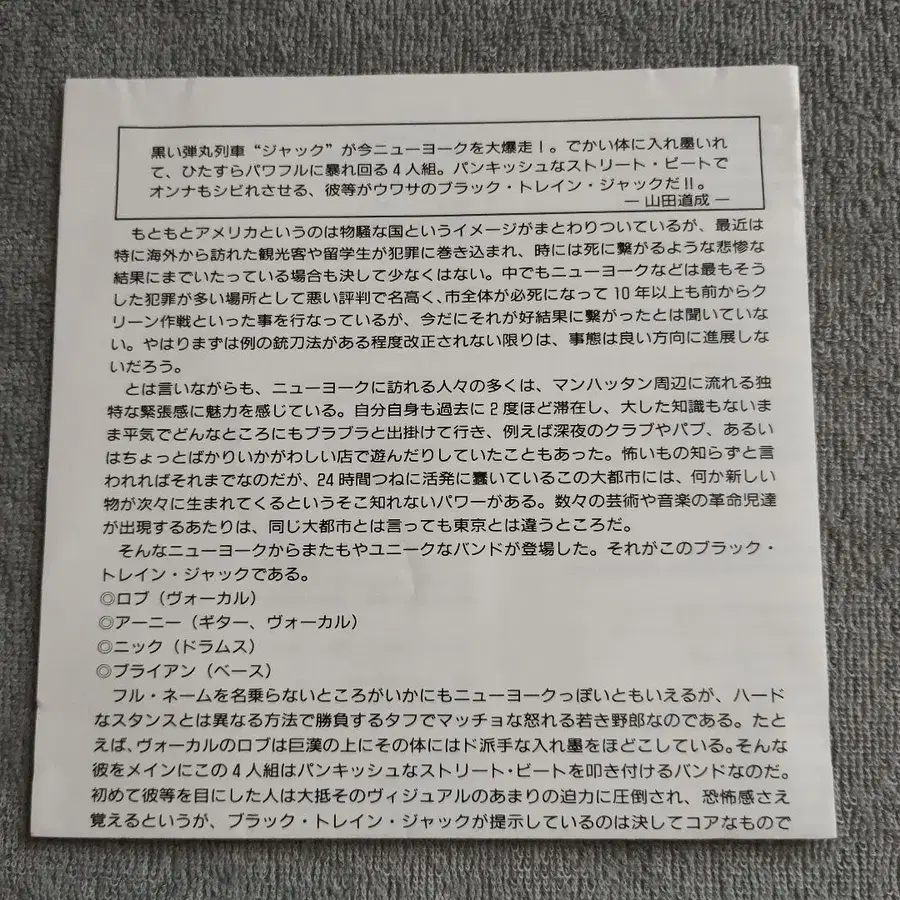 黒い弾丸列車“ジャック”が今ニューヨークを大爆走!。でかい体に入れ墨いれ
て、ひたすらパワフルに暴れ回る4人組。パンキッシュなストリート・ビートで
オンナもシビれさせる、彼等がウワサのブラック・トレイン・ジャックだ!!。
― 山田道成 ―
もともとアメリカというのは物騒な国というイメージがまとわりついているが、最近は
特に海外から訪れた観光客や留学生が犯罪に巻き込まれ、時には死に繋がるような悲惨な
結果にまでいたっている場合も決して少なくはない。中でもニューヨークなどは最もそう
した犯罪が多い場所として悪い評判で名高く、市全体が必死になって10年以上も前からク
リーン作戦といった事を行なっているが、今だにそれが好結果に繋がったとは聞いていな
い。やはりまずは例の銃刀法がある程度改正されない限りは、事態は良い方向に進展しな
いだろう。
とは言いながらも、ニューヨークに訪れる人々の多くは、マンハッタン周辺に流れる独
特な緊張感に魅力を感じている。自分自身も過去に2度ほど滞在し、大した知識もないま
ま平気でどんなところにもブラブラと出掛けて行き、例えば深夜のクラブやパブ、あるい
はちょっとばかりいかがわしい店で遊んだりしていたこともあった。怖いもの知らずと言
われればそれまでなのだが、24時間つねに活発に蠢いているこの大都市には、何か新しい
物が次々に生まれてくるというそこ知れないパワーがある。数々の芸術や音楽の革命児達
が出現するあたりは、同じ大都市とは言っても東京とは違うところだ。
そんなニューヨークからまたもやユニークなバンドが登場した。それがこのブラック・
トレイン・ジャックである。
◎ロブ(ヴォーカル)
◎アーニー(ギター、ヴォーカル)
◎ニック(ドラムス)
◎ブライアン(ベース)
フル・ネームを名乗らないところがいかにもニューヨークっぽいともいえるが、ハード
なスタンスとは異なる方法で勝負するタフでマッチョな怒れる若き野郎なのである。たと
えば、ヴォーカルのロブは巨漢の上にその体にはド派手な入れ墨をほどこしている。そんな
彼をメインにこの4人組はパンキッシュなストリート・ビートを叩き付けるバンドなのだ。
初めて彼等を目にした人は大抵そのヴィジュアルのあまりの迫力に圧倒され、恐怖感さえ
覚えるというが、ブラック・トレイン・ジャックが提示しているのは決してコアなもので